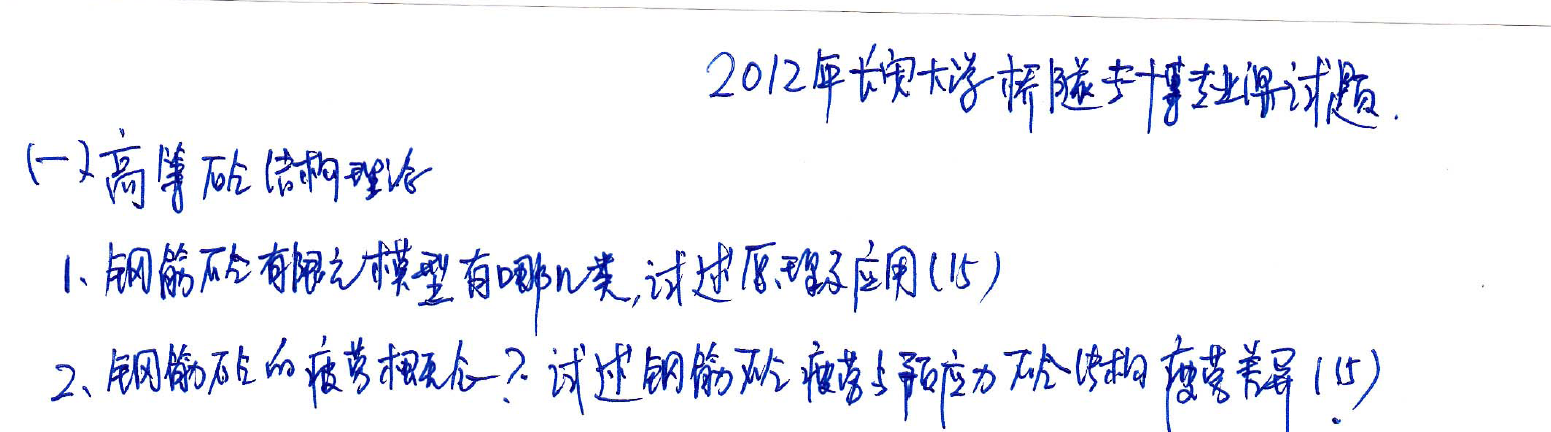 2012年长安大学桥隧专博专业课试题.
(一)高等砼结构理论
1、钢筋砼有限元模型有哪几类,试述原理及应用(15)
2、钢筋砼的疲劳概念?试述钢筋砼疲劳与预应力砼结构疲劳差异(15)